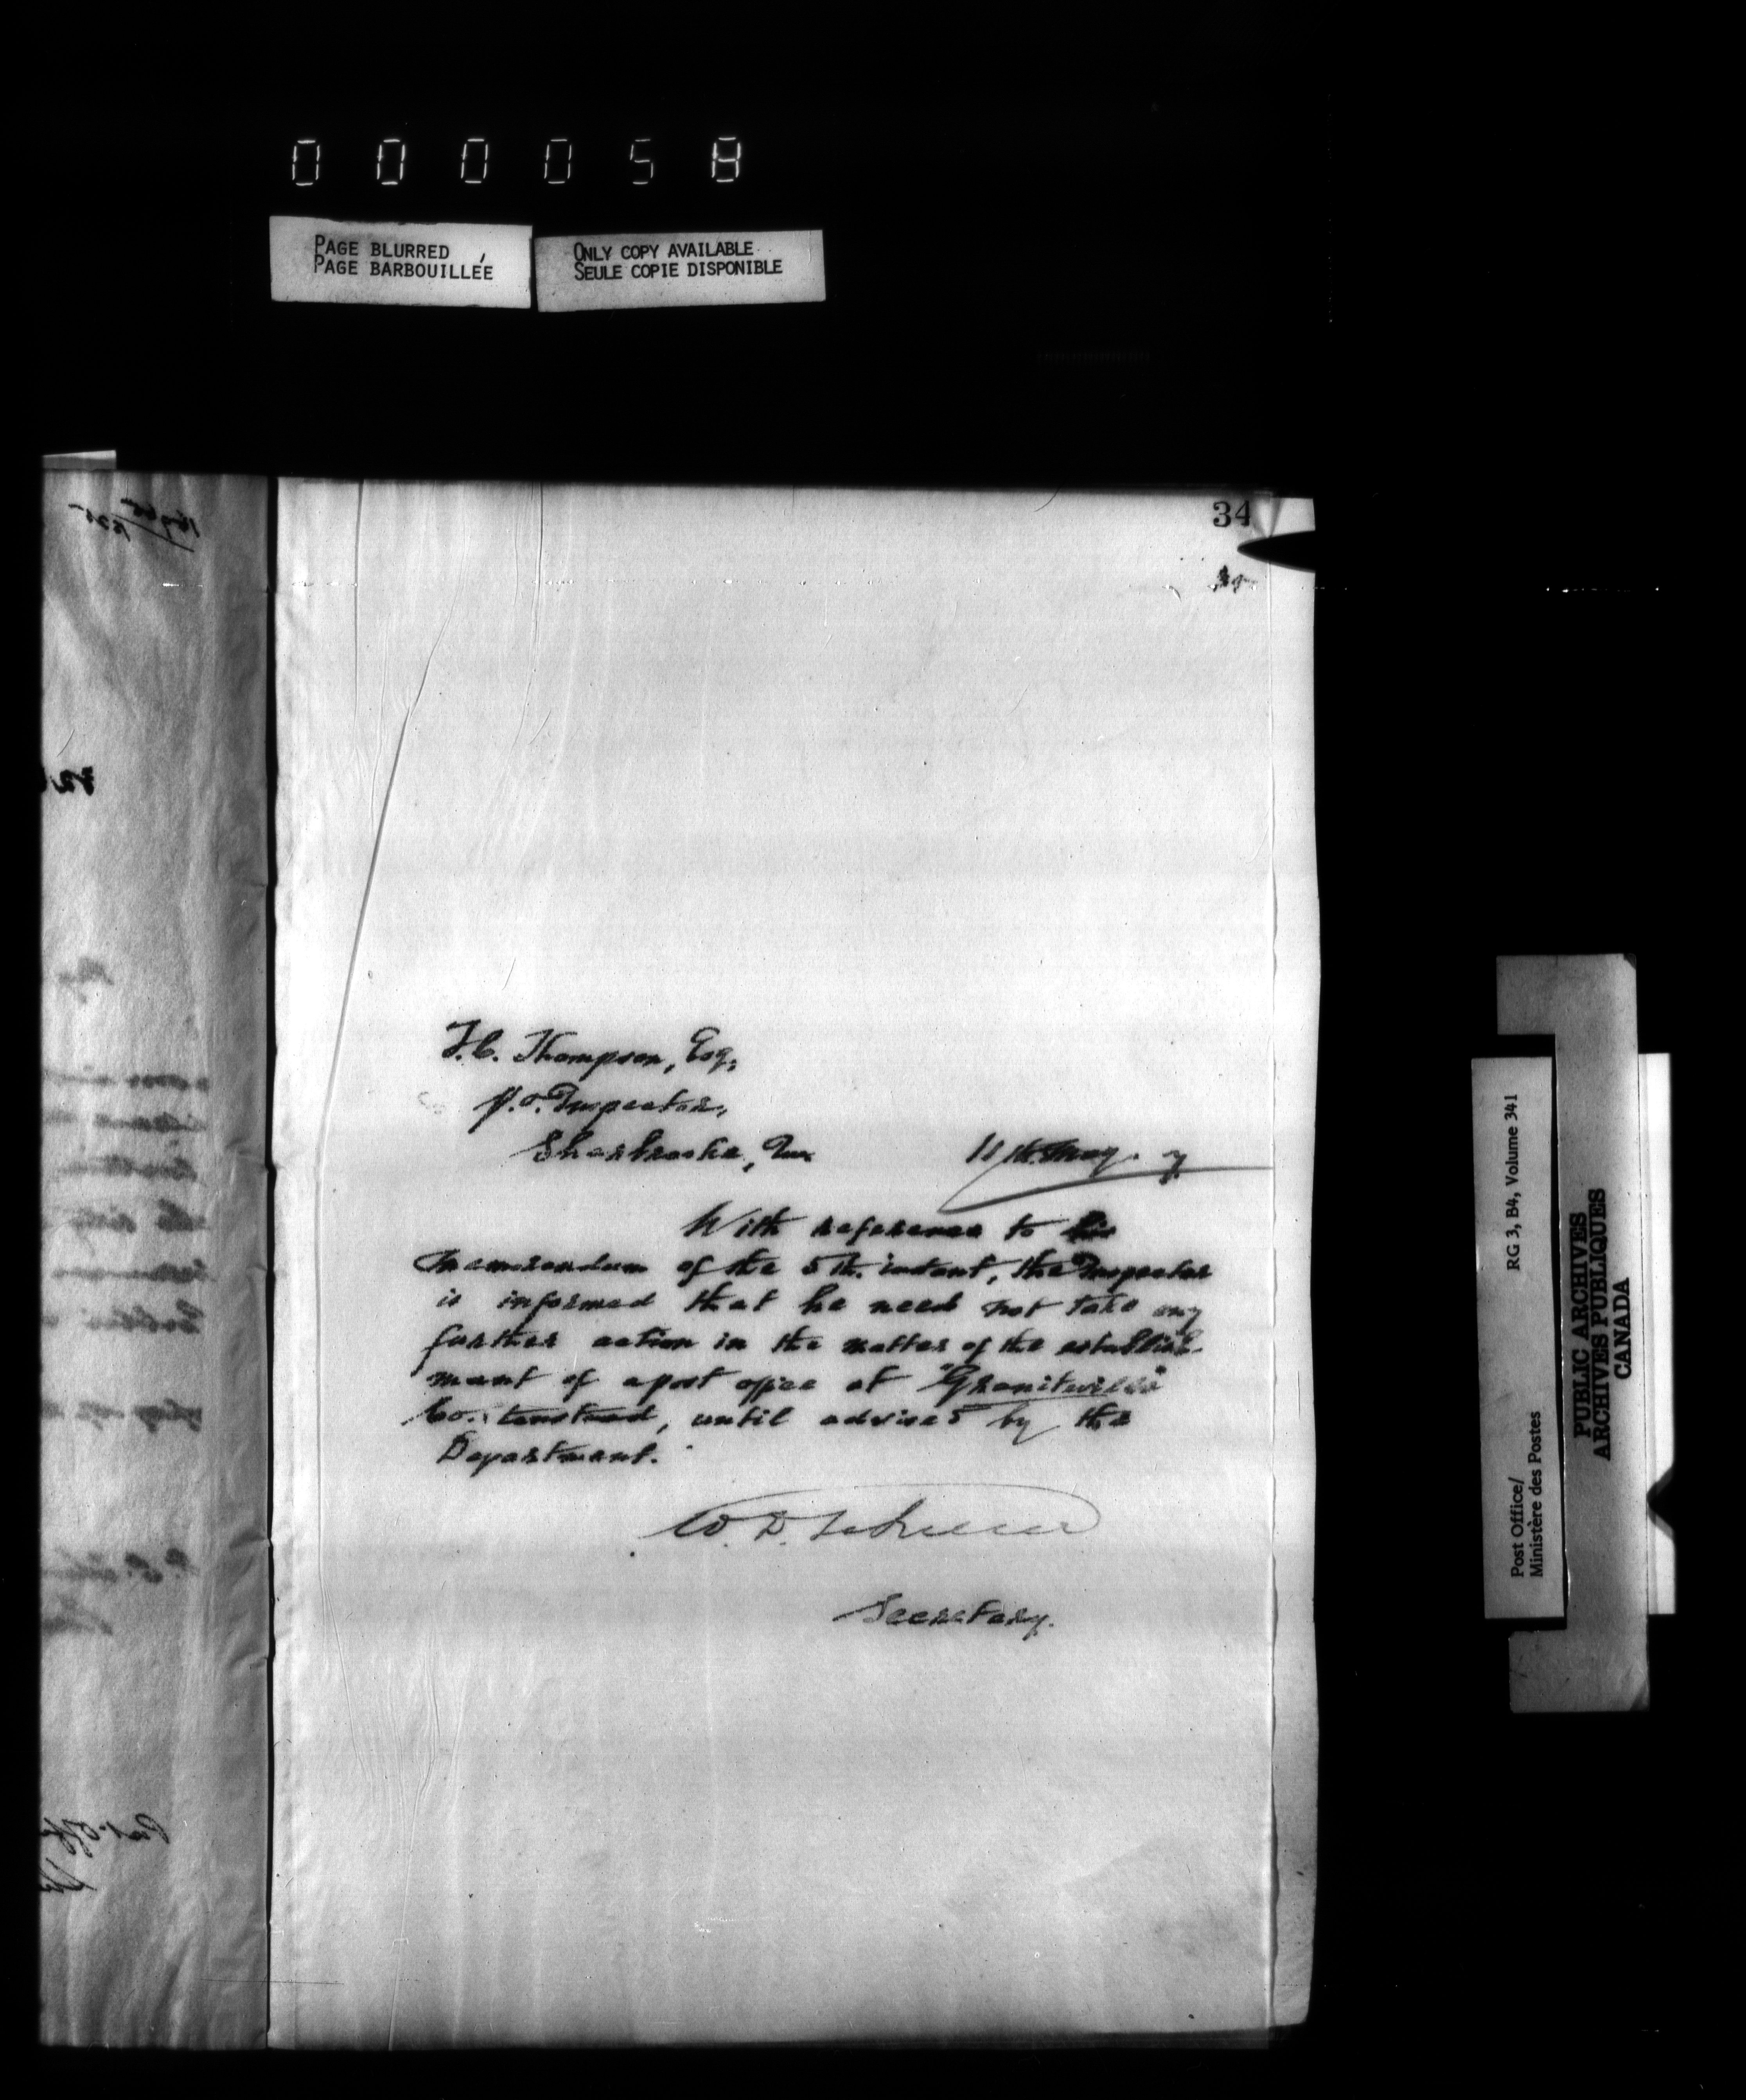 000058
PAGE BLURRED
PAGE BARBOUILLÉE
ONLY COPY AVAILABLE
SEULE COPIE DISPONIBLE
34
F.C. Thompson, Esq,
P.O. Inspector,
Sherbrooke, Que
11th. May. 7
With reference to his
memorandum of the 5th. instant, the Inspector
is informed that he need not take any
further action in the matter of the establish-
ment of a post office at "Graniteville"
Co. Stanstead, until advised by the
Department.
W. D.
Secretary.
Post Office/
Ministère des Postes
RG 3, B4, Volume 341
PUBLIC ARCHIVES
ARCHIVES PUBLIQUES
CANADA